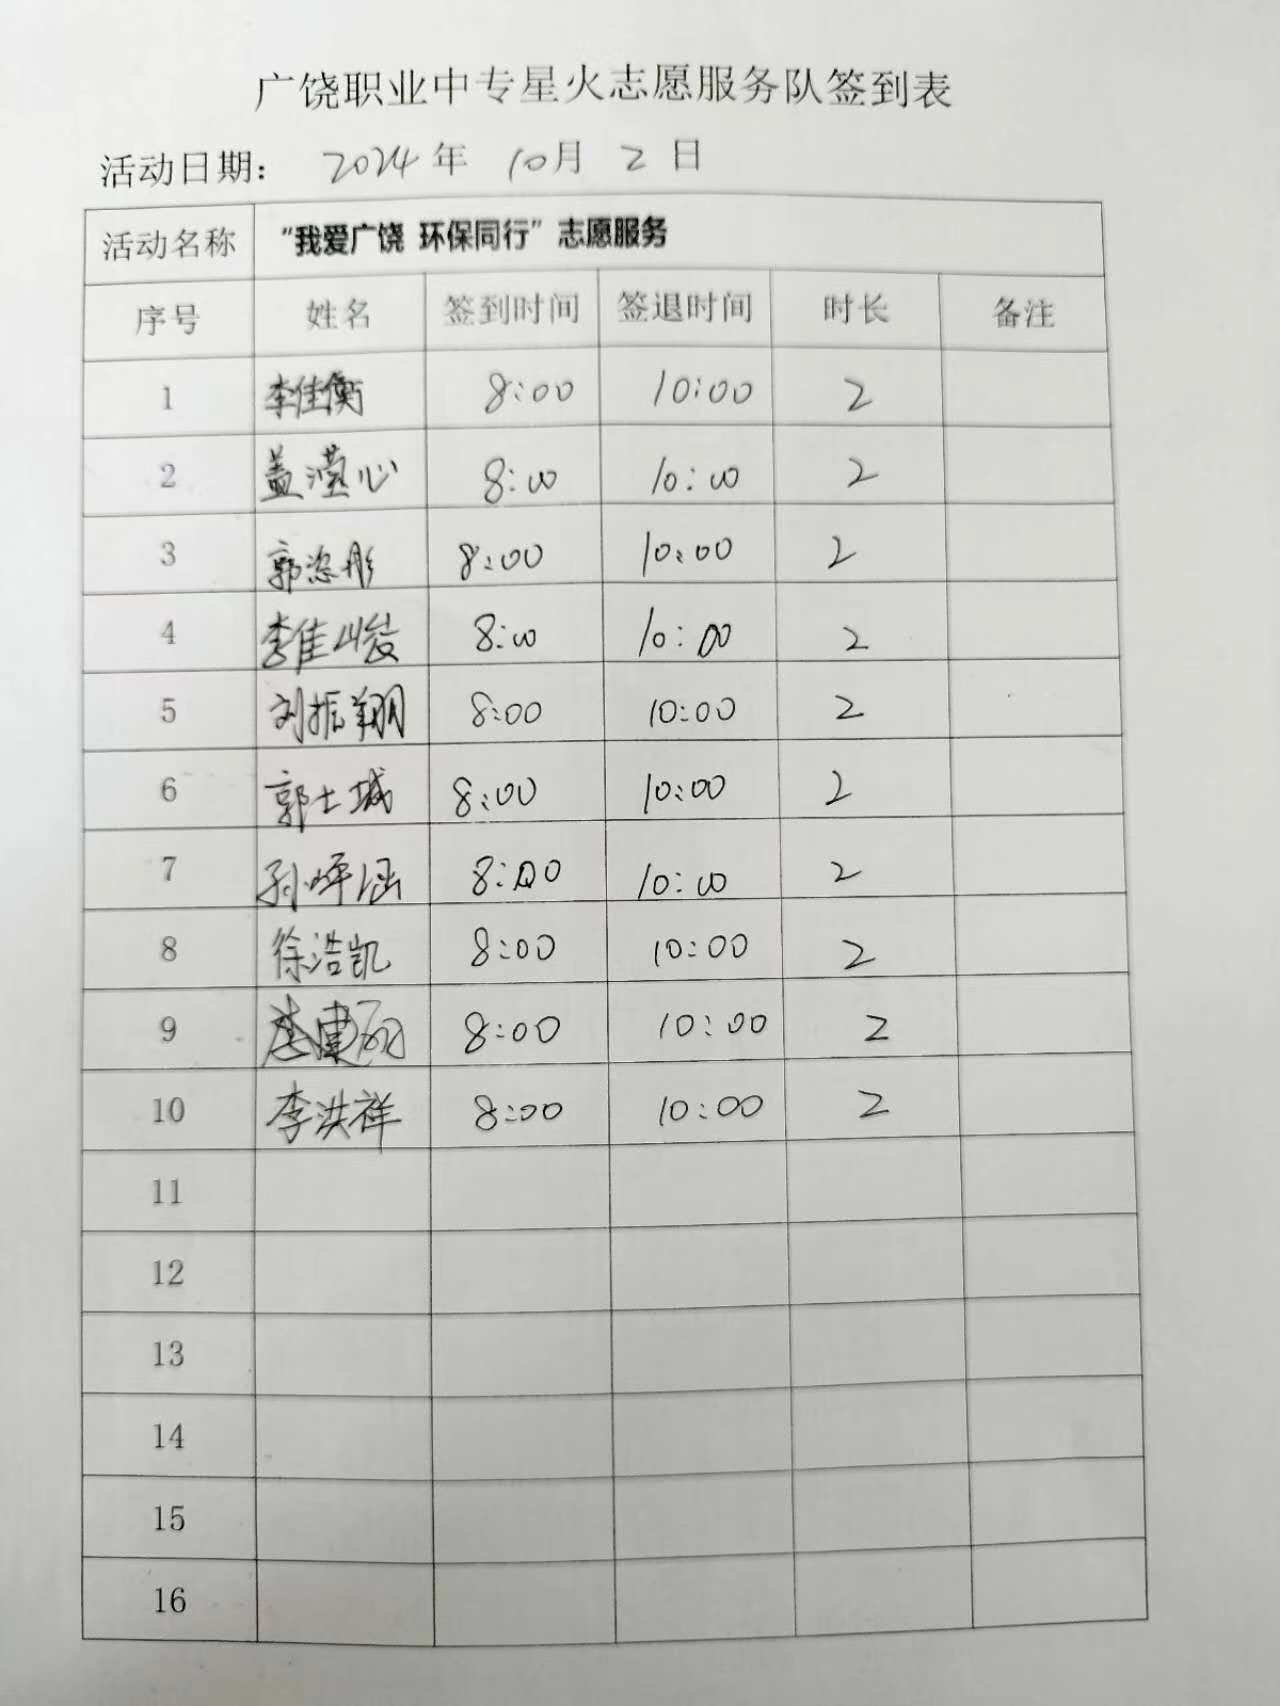 广饶职业中专星火志愿服务队签到表
活动日期： 2024 年 10月 2 日
活动名称 “我爱广饶 环保同行”志愿服务
序号 姓名 签到时间 签退时间 时长 备注
1 李佳衡 8:00 10:00 2
2 盖滢心 8:00 10:00 2
3 郭恣彤 8:00 10:00 2
4 李佳峻 8:00 10:00 2
5 刘振翔 8:00 10:00 2
6 郭士城 8:00 10:00 2
7 孙 涵 8:00 10:00 2
8 徐浩凯 8:00 10:00 2
9 8:00 10:00 2
10 李洪祥 8:00 10:00 2
11
12
13
14
15
16